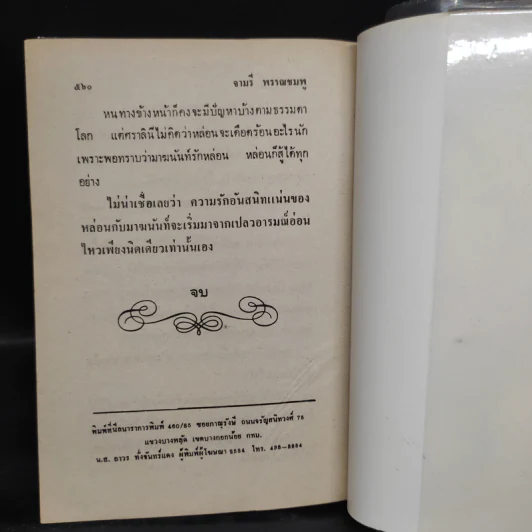 ๕๖๐ จามรี พรรณชมพู
หนทางข้างหน้าก็คงจะมีปัญหาบ้างตามธรรมดา
โลก แต่ศราลินีไม่คิดว่าหล่อนจะเดือดร้อนอะไรนัก
เพราะพอทราบว่ามาฆนันท์รักหล่อน หล่อนก็สู้ได้ทุก
อย่าง
ไม่น่าเชื่อเลยว่า ความรักอันสนิทแน่นของ
หล่อนกับมาฆนันท์จะเริ่มมาจากเปลวอารมณ์อ่อน
ไหวเพียงนิดเดียวเท่านั้นเอง
จบ
พิมพ์ที่ธนาคารการพิมพ์ 460/83 ซอยภาณุรังษี ถนนจรัญสนิทวงศ์ 75
แขวงบางพลัด เขตบางกอกน้อย กทม.
น.ส. ถาวร ทั่งจันทร์แดง ผู้พิมพ์ผู้โฆษณา 2534 โทร.